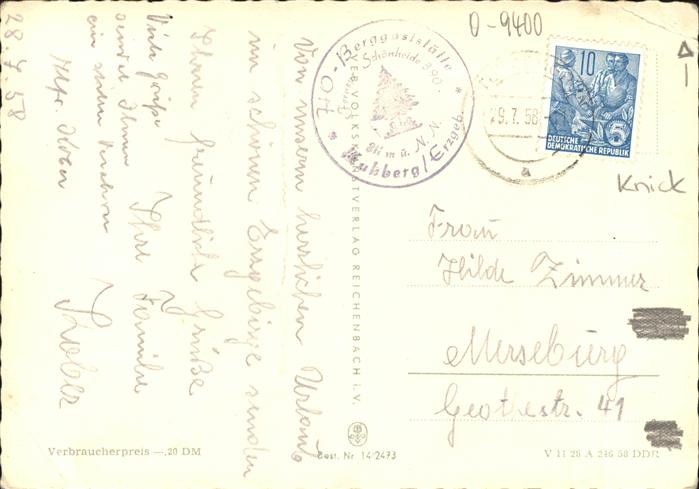 28.7.58
Von unserm herrlichen Urlaub
im schönen Erzgebirge senden
Ihnen freundliche Grüße
Ihre Familie
Viele Grüße
sendet Ihnen
ein
HO-Berggaststätte
Schönheide 390
811 m ü. N. N.
Kuhberg/Erzgeb.
VEB VOLKSKUNSTVERLAG REICHENBACH i. V.
0-9400
9.7.58
a
10
5
DEUTSCHE
DEMOKRATISCHE REPUBLIK
Knick
Frau
Hilde Zimmer
Merseburg
Geothestr. 41
Verbraucherpreis —,20 DM
Best. Nr. 14 2473
V 11 28 A 246 58 DDR